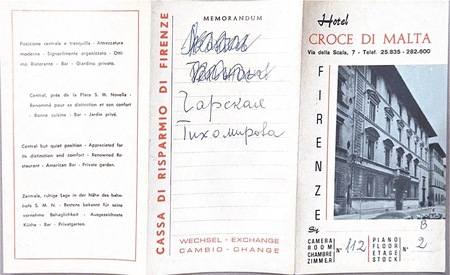 Posizione centrale e tranquilla - Attrezzatura
moderna - Signorilmente organizzato - Otti-
mo Ristorante - Bar - Giardino privato.
Central, près de la Place S. M. Novella -
Renommé pour sa distinction et son confort
- Bonne cuisine - Bar - Jardin privé.
Central but quiet position - Appreciated for
its distinction and comfort - Renowned Re-
staurant - American Bar - Private garden.
Zentrale, ruhige Lage in der Nähe des bahn-
hofs S. M. N - Bestens bekannt für seine
vornehme Behaglichkeit - Ausgezeichnete
Küche - Bar - Privatgarten.
CASSA DI RISPARMIO DI FIRENZE
MEMORANDUM
Чарская
Тихомирова
WECHSEL - EXCHANGE
CAMBIO - CHANGE
Hotel
CROCE DI MALTA
Via della Scala, 7 - Telef. 25.835 - 282-600
FIRENZE
CAMERA
ROOM
CHAMBRE
ZIMMER
N° 112
PIANO
FLOOR
ETAGE
STOCK
N° 2
B